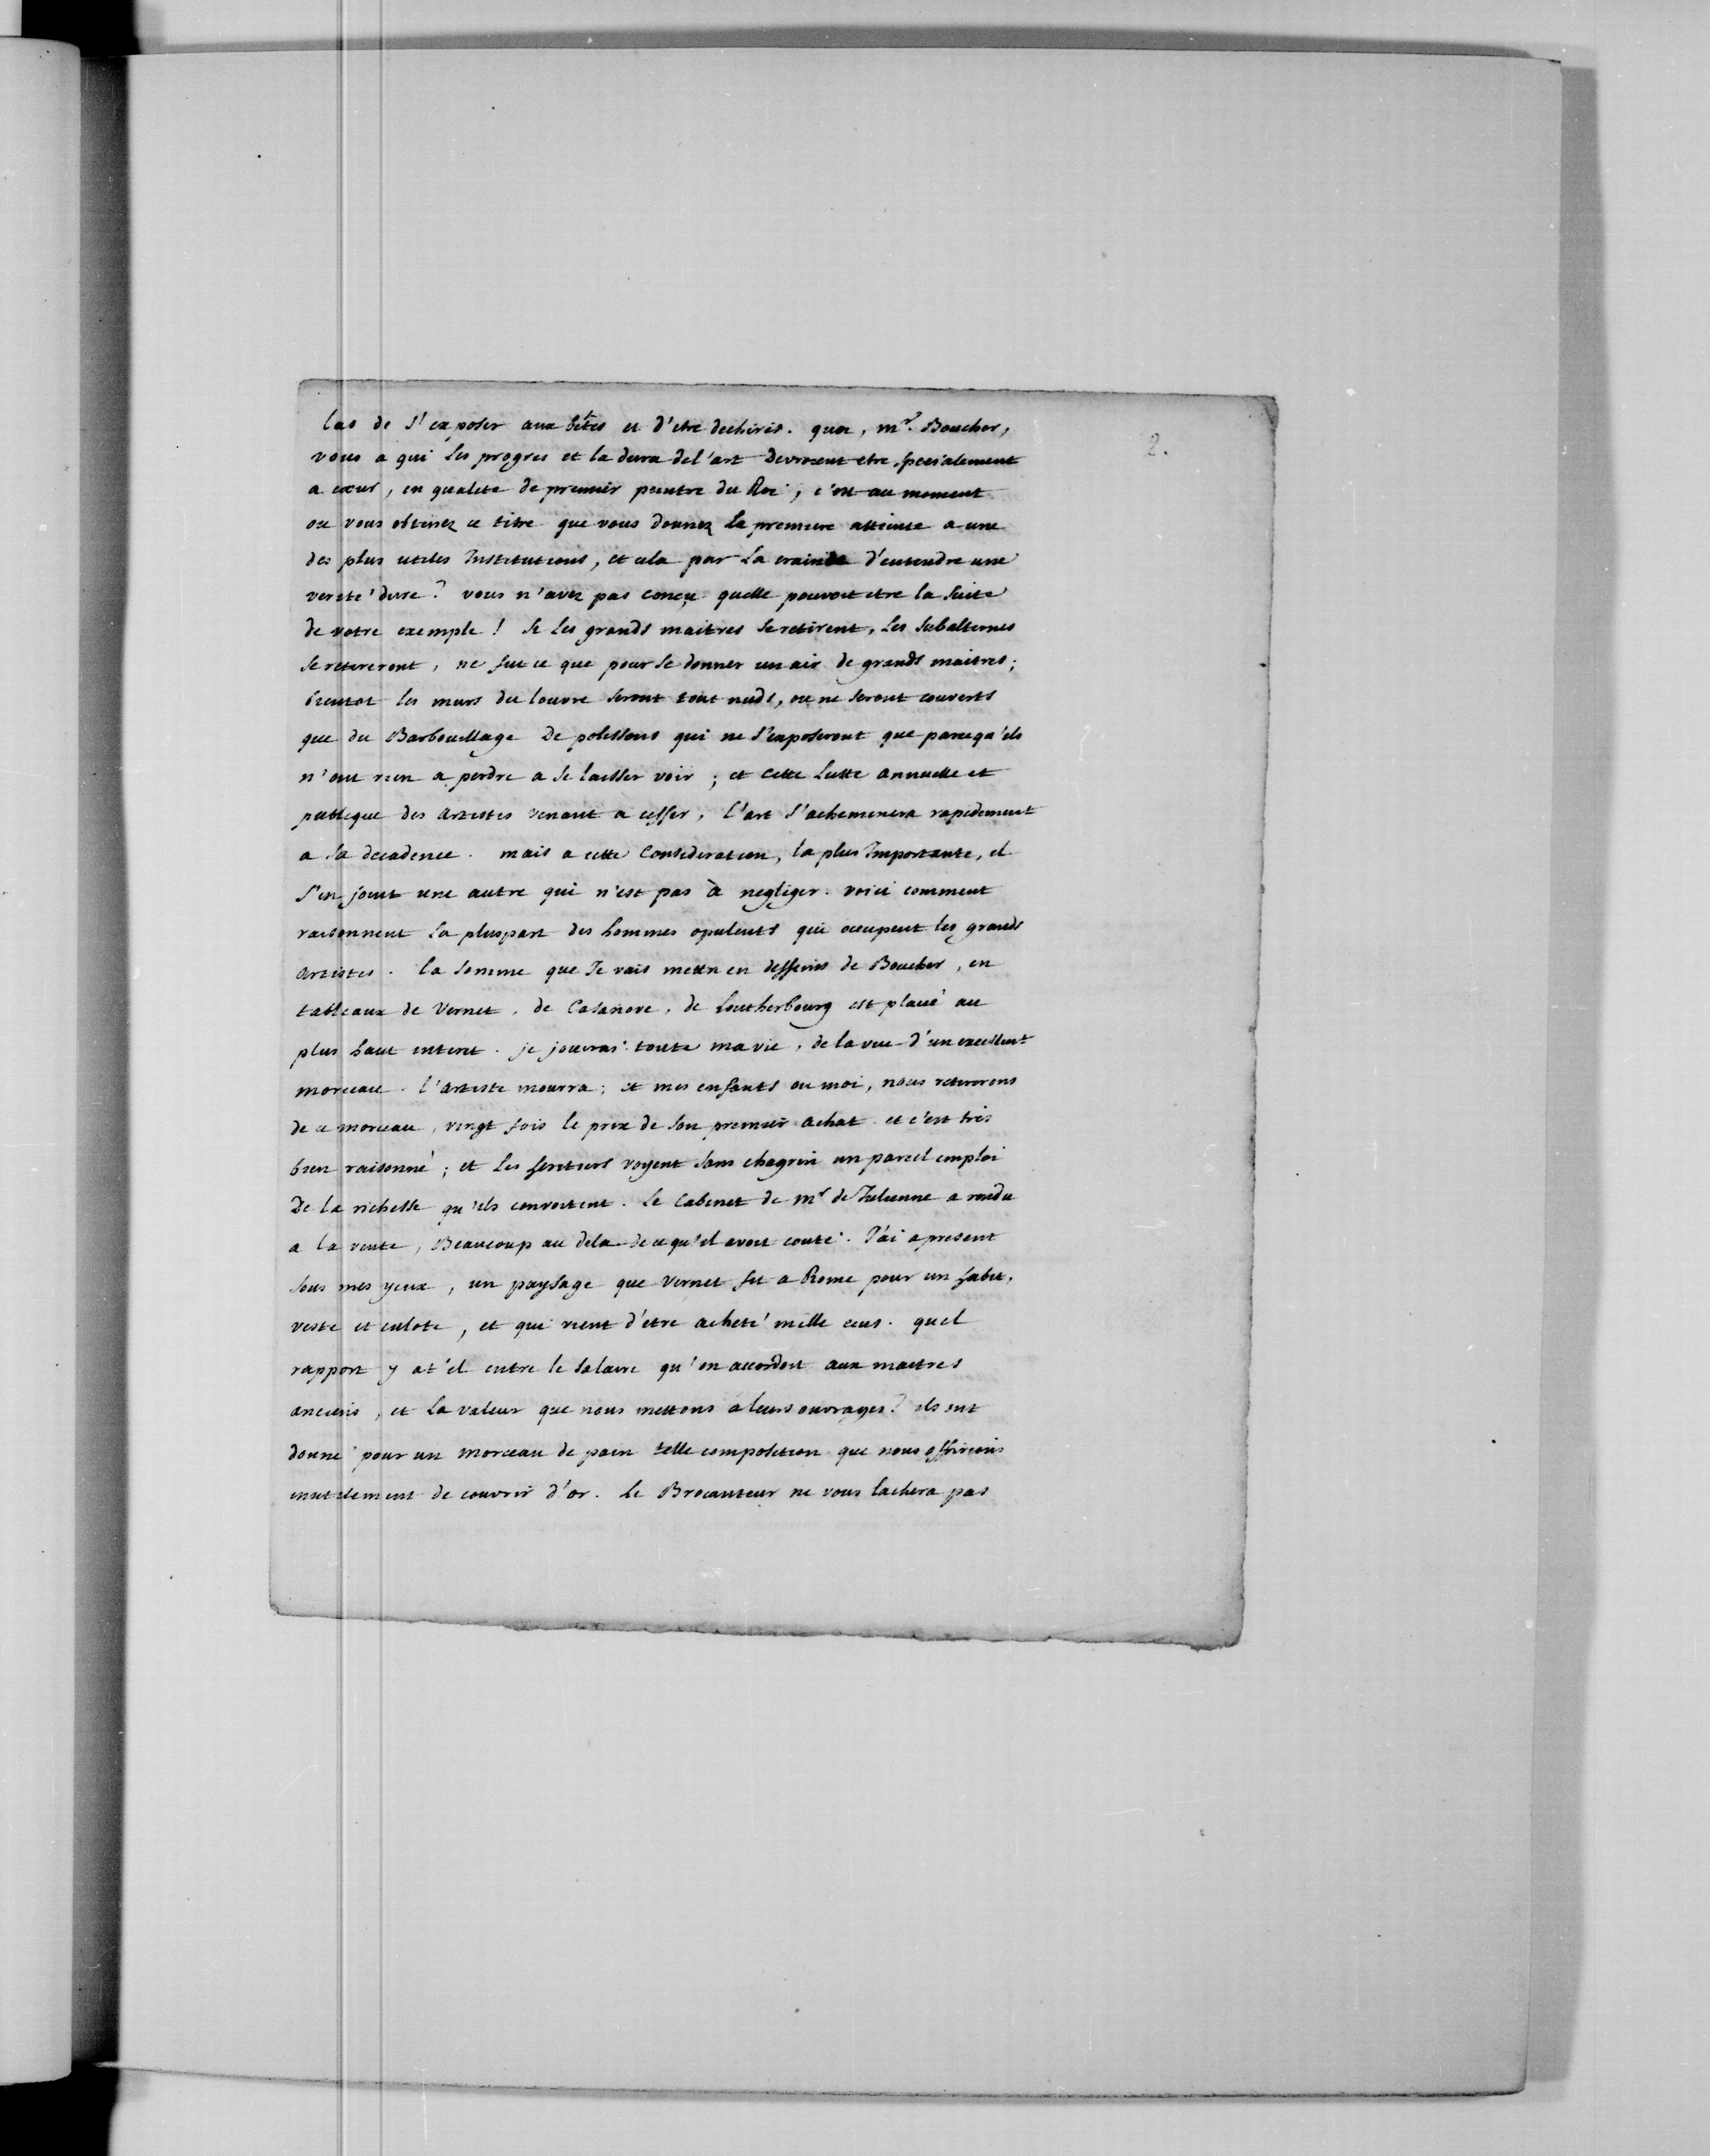 2.
las de s'exposer aux bêtes et d'etre dechirés. quoi, mr. Boucher,
vous a qui les progres et la dura de l'art devroient etre specialement
a cœur, en qualité de premier peintre du Roi, c'est au moment
ou vous obtenez ce titre que vous donnez la premiere atteinte a une
des plus utiles Institutions, et cela par la crainte d'entendre une
verité dure? vous n'avez pas conçu quelle pouvoit etre la suite
de votre exemple! Si les grands maitres se retirent, les subalternes
se retireront, ne fut ce que pour se donner un air de grands maitres;
bientot les murs du louvre seront tout nuds, ou ne seront couverts
que du Barbouillage de polissons qui ne s'exposeront que parcequ'ils
n'ont rien a perdre a se laisser voir; et cette lutte annuelle et
publique des artistes venant a cesser, l'art s'acheminera rapidement
a sa decadence. mais a cette consideration, la plus Importante, il
s'en joint une autre qui n'est pas à negliger. voici comment
raisonnent la pluspart des hommes opulents qui occupent les grands
artistes. la somme que Je vais mettre en desseins de Boucher, en
tableaux de Vernet, de Casanove, de Loutherbourg est placé au
plus haut interet. je jouirai toute ma vie, de la vue d'un excellent
morceau. l'artiste mourra; et mes enfants ou moi, nous retirerons
de ce morceau, vingt fois le prix de son premier achat. et c'est très
bien raisonné; et les heritiers voyent sans chagrin un pareil emploi
De la richesse qu'ils convoitent. Le Cabinet de Mr de Julienne a rendu
a la vente, Beaucoup au dela de ce qu'il avoit couté. J'ai apresent
sous mes yeux, un paysage que Vernet fit a Rome pour un habit,
veste et culote, et qui vient d'etre acheté mille ecus. quel
rapport y at'il entre le salaire qu'on accordoit aux maitres
anciens, et la valeur que nous mettons a leurs ouvrages? ils ont
donné pour un morceau de pain telle composition que nous offririons
inutilement de couvrir d'or. le Brocanteur ne vous lachera pas